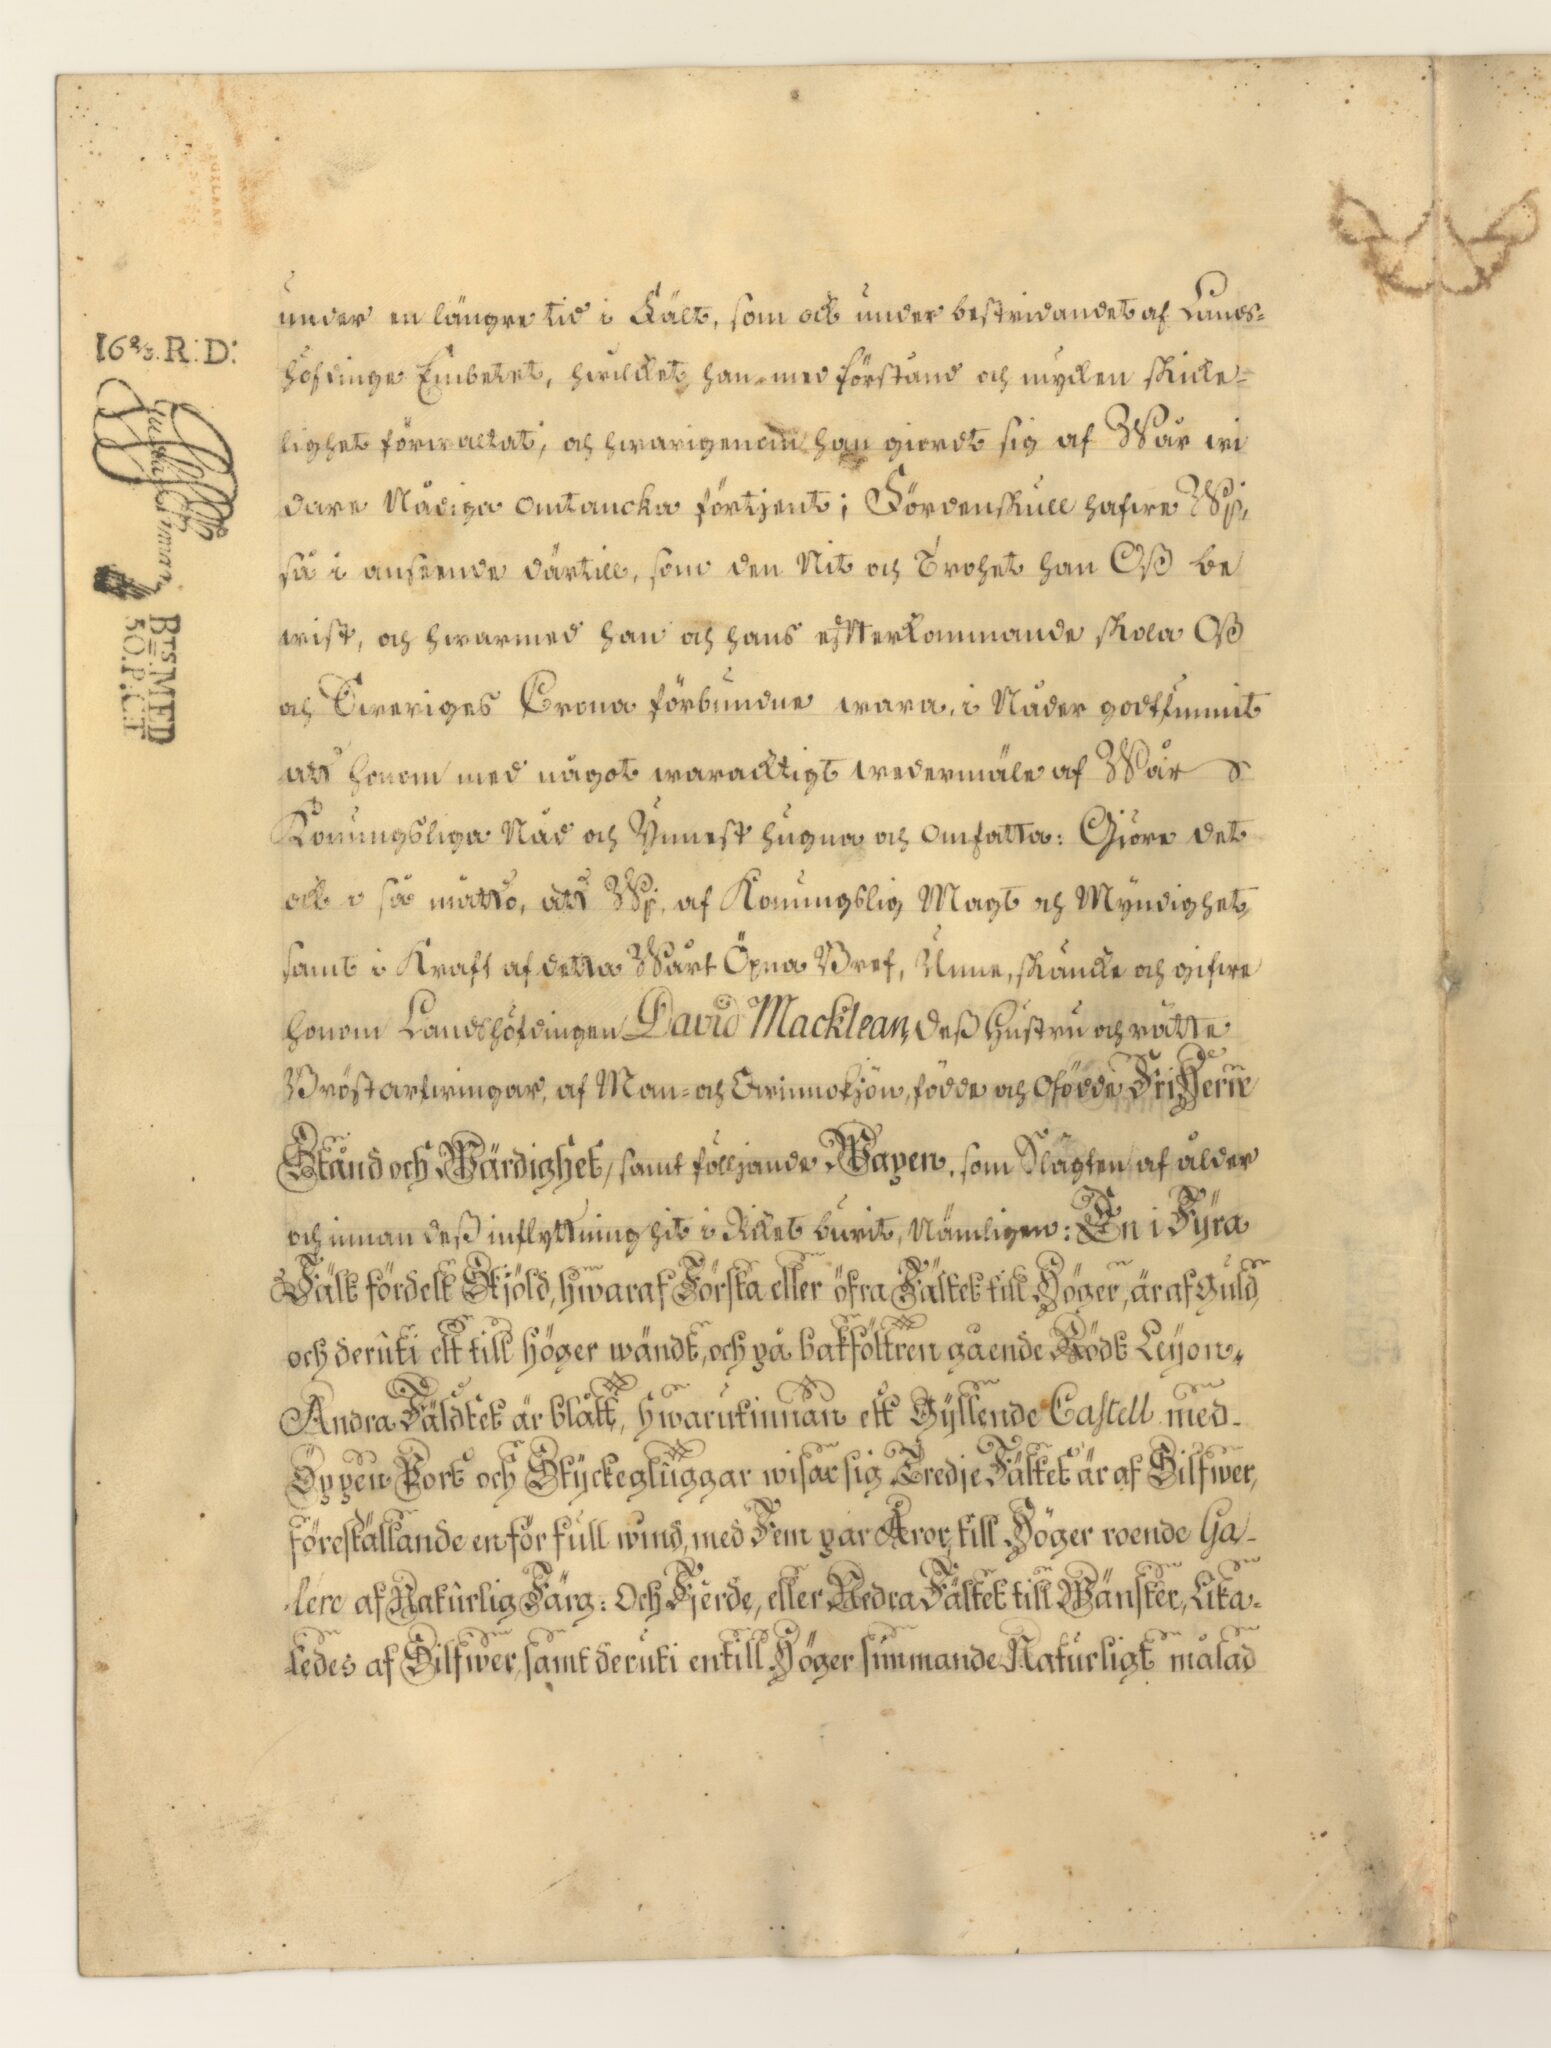 16 2/3. R: D:
BTS MED
50. P. C:T
under en längre tid i Fält, som ock under bestridandet af Lands=
höfdinge Embetet, hwilcket han med förstånd och mycken skicke=
lighet förwaltat, och hwarigenom han giordt sig af Wår wi
dare Nådiga omtancka förtjent; Fördenskull hafwe Wj,
så i anseende därtill, som den Nit och Trohet han Oß be
wist, och hwarmed han och hans efterkommande skola Oß
och Sweriges Crona förbundne wara, i Nåder godtfunnit
att honom med något warachtigt wedermäle af Wår
Konungsliga Nåd och Ynnest hugna och omfatta: Giöre det
ock i så måtto, att Wj, af Konungslig Magt och Myndighet,
samt i Kraft af detta Wårt Öpna Bref, Unne, skäncke och gifwe
honom Landshöfdingen David Macklean, deß Hustru och rätte
Bröstarfwingar, af Man= och Qwinnokjön, födde och ofödde FriHerre
Stånd och Wärdighet, samt följande Wapen, som Slägten af ålder
och innan deß inflyttning hit i Riket burit, Nämligen: En i Fÿra
Fält fördelt Skjöld, hwaraf Första eller öfra Fältet till Höger, är af Guld,
och deruti ett till höger wändt, och på bakföttren gående Rödt Leÿon,
Andra Fäldtet är blått, hwarutinnan ett Gÿllende Castell med
Öppen Port och Stÿckegluggar wisar sig Tredje Fältet är af Silfwer,
föreställande en för full wind, med Fem par Åror, till Höger roende Ga-
lere af Naturlig Färg: Och Fjerde, eller Nedra Fältet till Wänster, Lika-
ledes af Silfwer, samt deruti en till Höger simmande Naturligt målad